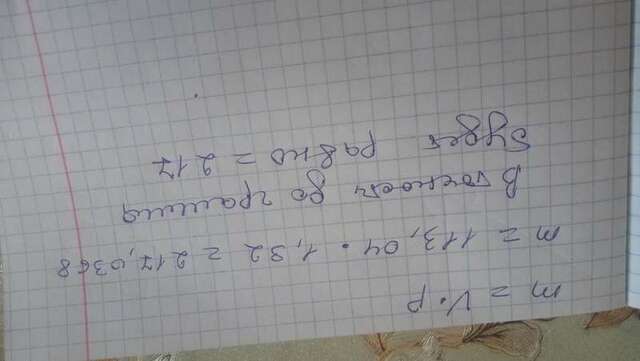 m = V · p
m = 113,04 · 1,92 = 217,0368
В точность до грамма
будет равно = 217